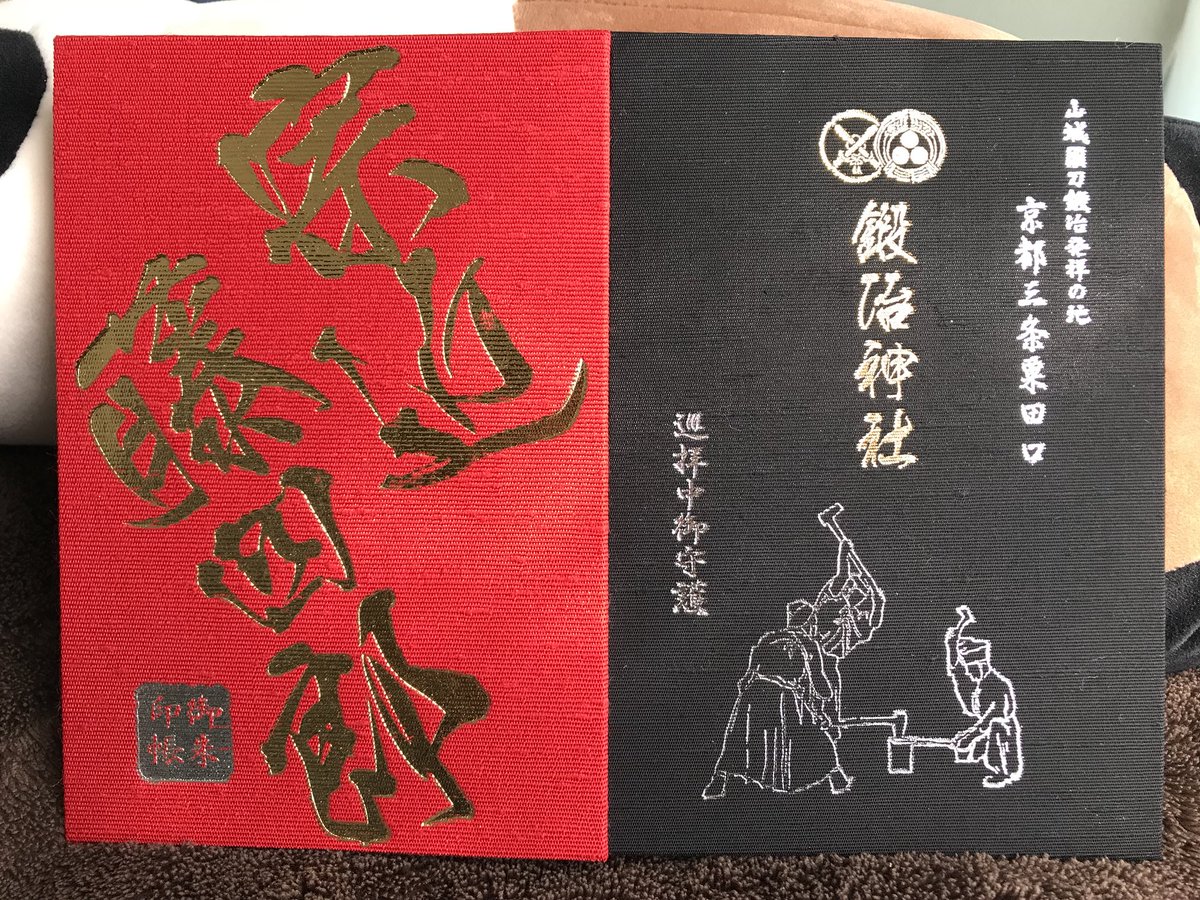 藤四郎
御朱
印帳
山城國刀鍛冶発祥の地
京都三条粟田口
鍛冶神社
巡拝中御守護